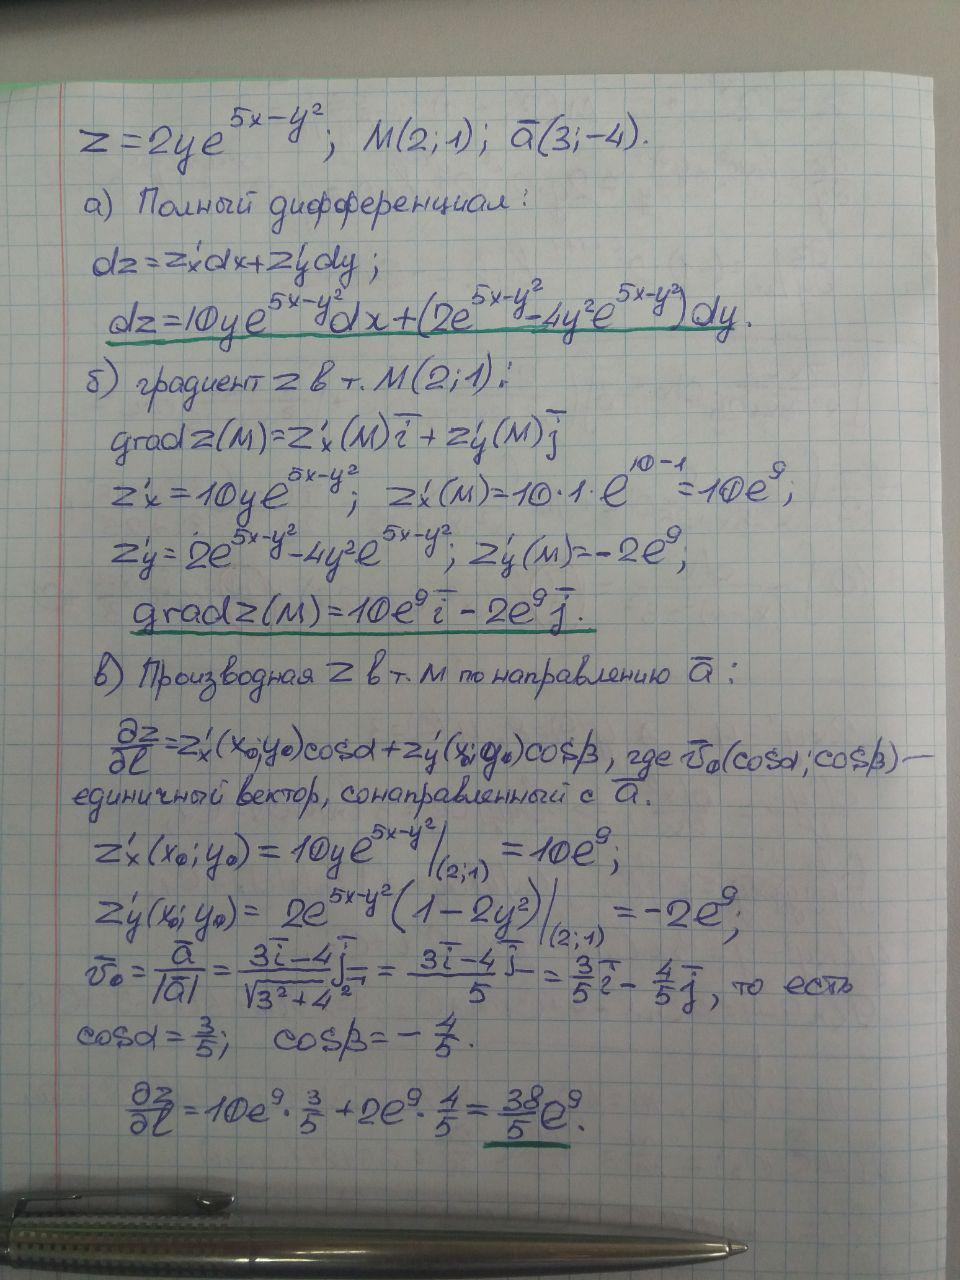 z=2ye^{5x-y²}; M(2;1); a̅(3;-4).
а) Полный дифференциал:
dz=z'ₓdx+z'ᵧdy;
dz=10ye^{5x-y²}dx+(2e^{5x-y²}-4y²e^{5x-y²})dy.
б) градиент z в т. M(2;1):
grad z(M)=z'ₓ(M)i̅+z'ᵧ(M)j̅
z'ₓ=10ye^{5x-y²}; z'ₓ(M)=10·1·e^{10-1}=10e⁹;
z'ᵧ=2e^{5x-y²}-4y²e^{5x-y²}; z'ᵧ(M)=-2e⁹;
grad z(M)=10e⁹i̅-2e⁹j̅.
в) Производная z в т. M по направлению a̅:
∂z/∂l=z'ₓ(x₀;y₀)cosα+z'ᵧ(x₀;y₀)cosβ, где v̅₀(cosα;cosβ)—
единичный вектор, сонаправленный с a̅.
z'ₓ(x₀;y₀)=10ye^{5x-y²}|_{(2;1)}=10e⁹;
z'ᵧ(x₀;y₀)=2e^{5x-y²}(1-2y²)|_{(2;1)}=-2e⁹;
v̅₀=a̅/|a̅|=(3i̅-4j̅)/√(3²+4²)=(3i̅-4j̅)/5=3/5 i̅-4/5 j̅, то есть
cosα=3/5; cosβ=-4/5.
∂z/∂l=10e⁹·3/5+2e⁹·4/5=38/5 e⁹.